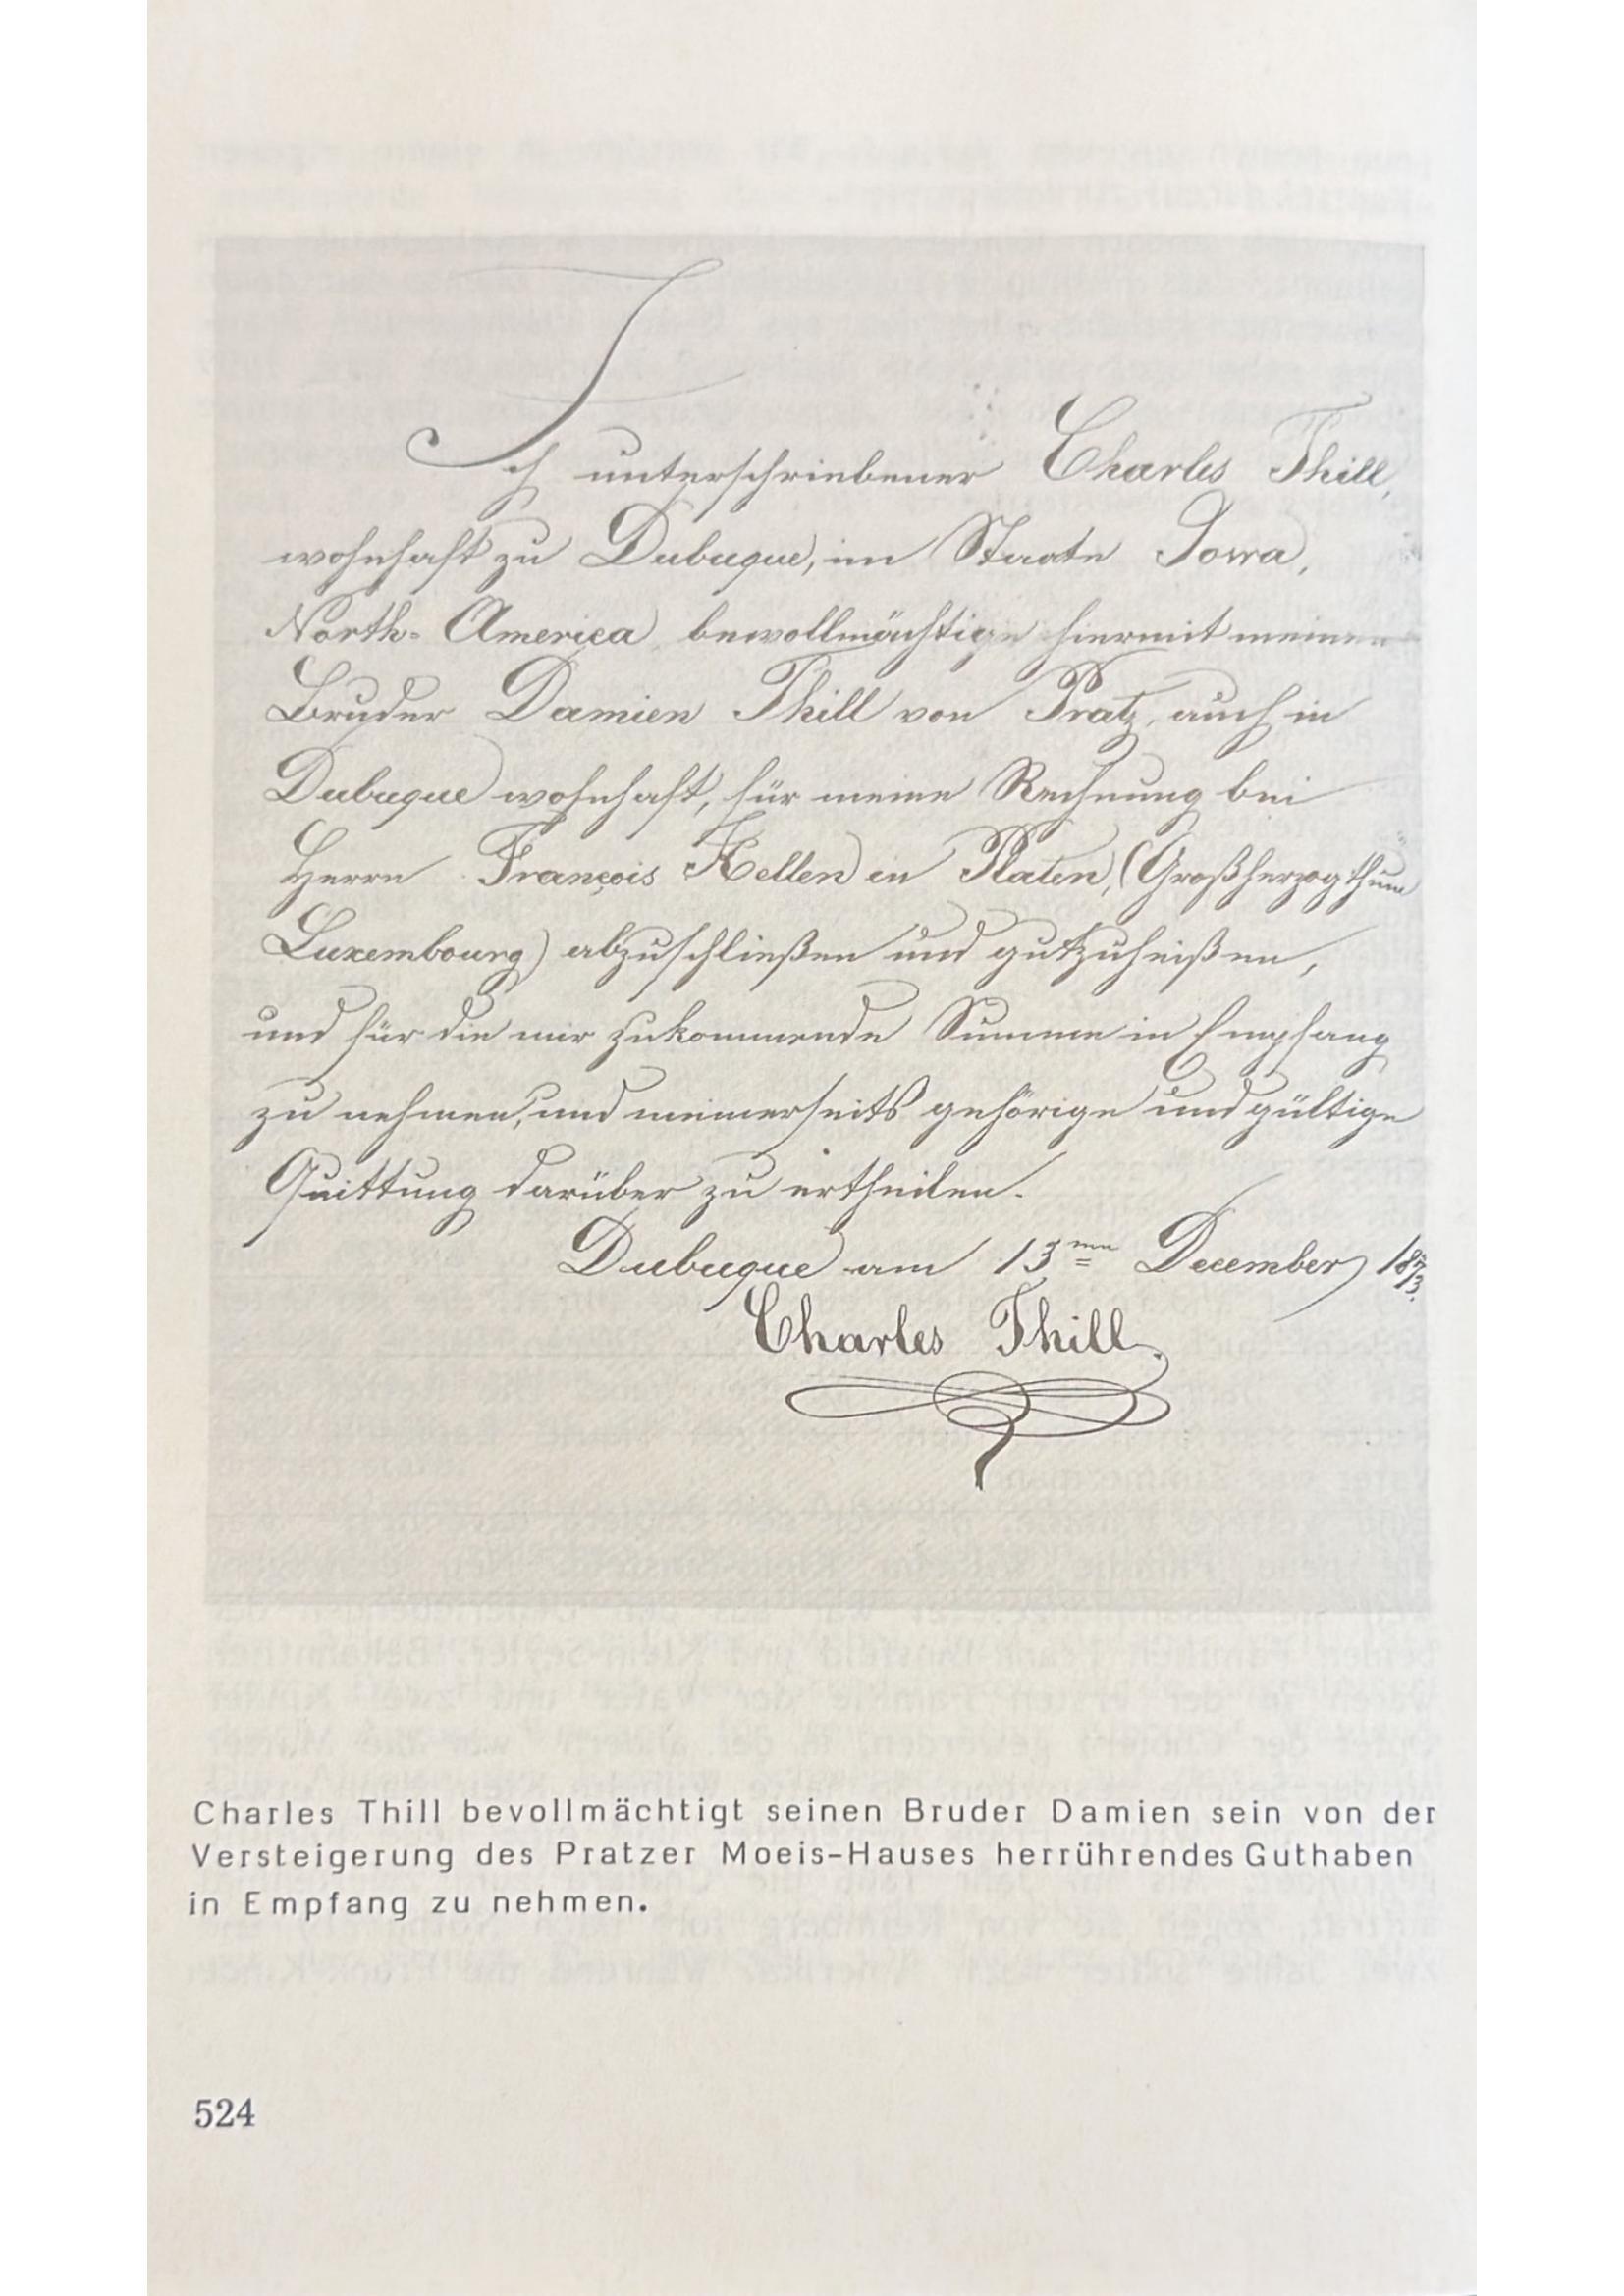 Ich unterschriebener Charles Thill,
wohnhaft zu Dubuque, im Staate Iowa,
North-America bevollmächtige hiermit meinen
Bruder Damien Thill von Pratz, auch in
Dubuque wohnhaft, für meine Rechnung bei
Herrn François Kellen in Platen, (Großherzogthum
Luxembourg) abzuschließen und gutzuheißen,
und für die mir zukommende Summe in Empfang
zu nehmen, und meinerseits gehörige und gültige
Quittung darüber zu ertheilen.
Dubuque am 13ten December 1873.
Charles Thill
Charles Thill bevollmächtigt seinen Bruder Damien sein von der
Versteigerung des Pratzer Moeis-Hauses herrührendes Guthaben
in Empfang zu nehmen.
524